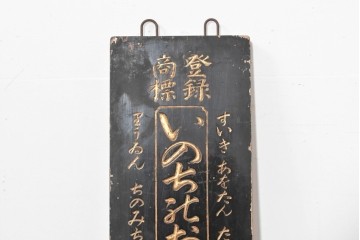 登録
商標
すいき あをたん た
いのちのお
りうゐん ちのみち